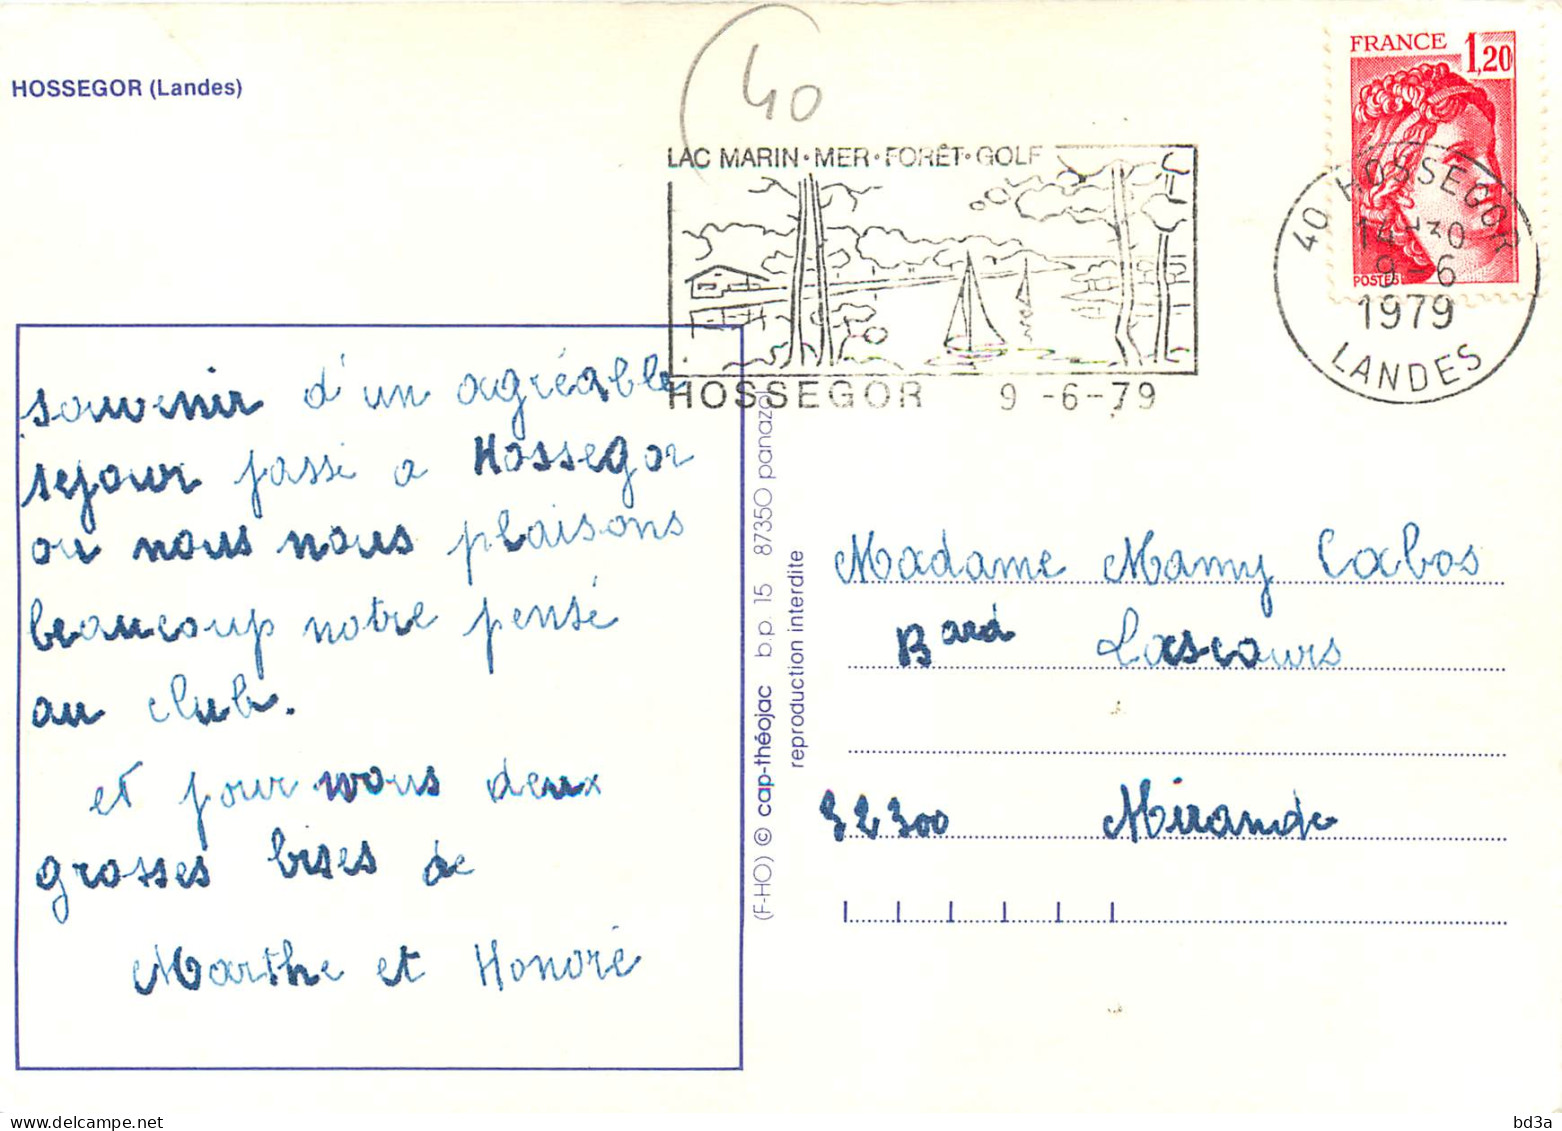 HOSSEGOR (Landes)
40
FRANCE 1,20
POSTES
LAC MARIN•MER•FORÊT•GOLF
HOSSEGOR 9 -6-79
40 HOSSEGOR
14-30
9-6
1979
LANDES
souvenir d'un agréable
sejour passé a Hossegor
ou nous nous plaisons
beaucoup notre pensé
au club.
et pour vous deux
grosses bises de
Marthe et Honoré
(F-HO) © cap-théojac b.p. 15 87350 panazol
reproduction interdite
Madame Mamy Cabos
Bard Lascours
32300 Mirande
bd3a